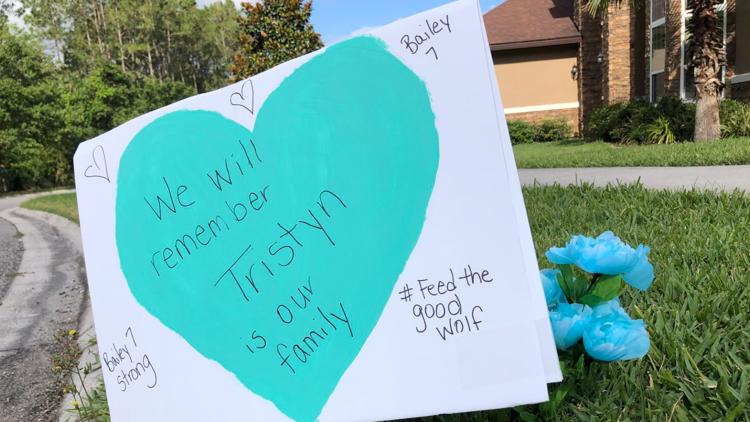 Bailey
7
We will
remember
Tristyn
is our
family
#Feed the
good
wolf
Bailey 7
strong